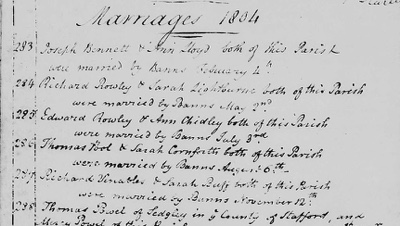 Marriages 1804
283 Joseph Bennett & Ann Lloyd both of this Parish
were married by Banns February 4th
284 Richard Rowley & Sarah Lightburne both of this Parish
were married by Banns May 2nd
285 Edward Rowley & Ann Chidley both of this Parish
were married by Banns July 3rd
286 Thomas & Sarah Cornforth both of this Parish
were married by Banns August 6th
287 Richard Venables & Sarah both of this Parish
were married by Banns November 12th
288 Thomas Powel of Sedgley in ye County of Stafford, and
Mary Powel of this